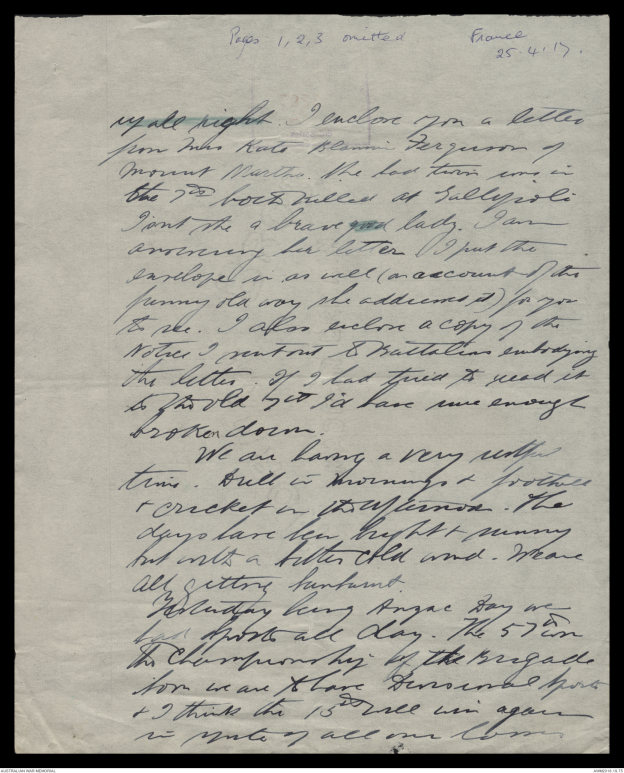 Pages 1, 2, 3 omitted France
25.4.17.
up all right. I enclose you a letter
from Mrs Kate Ferguson of
Mount Martha. She had twin sons in
the 7th both killed at Gallipoli
Isnt she a brave lady. I am
answering her letter. I put the
envelope in as well (on account of the
funny old way she addresses it) for you
to see. I also enclose a copy of the
Notice I sent out to Battalions embodying
the letter. If I had tried to read it
to the old 7th I'd have sure enough
broken down.
We are having a very restful
time. Drill in mornings & football
& cricket in the afternoon. The
days have been bright & sunny
but with a bitter cold wind. We are
all getting sunburnt.
Yesterday being Anzac Day we
had sports all day. The 57th won
the Championship of the Brigade
soon we are to have Divisional Sports
& I think the 15th will win again
in spite of all our losses
AUSTRALIAN WAR MEMORIAL